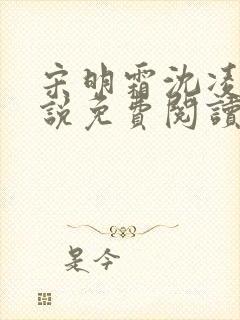 宋明霜沈凌
說免費閱讀
是今